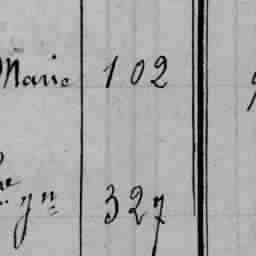 Marie 102
327